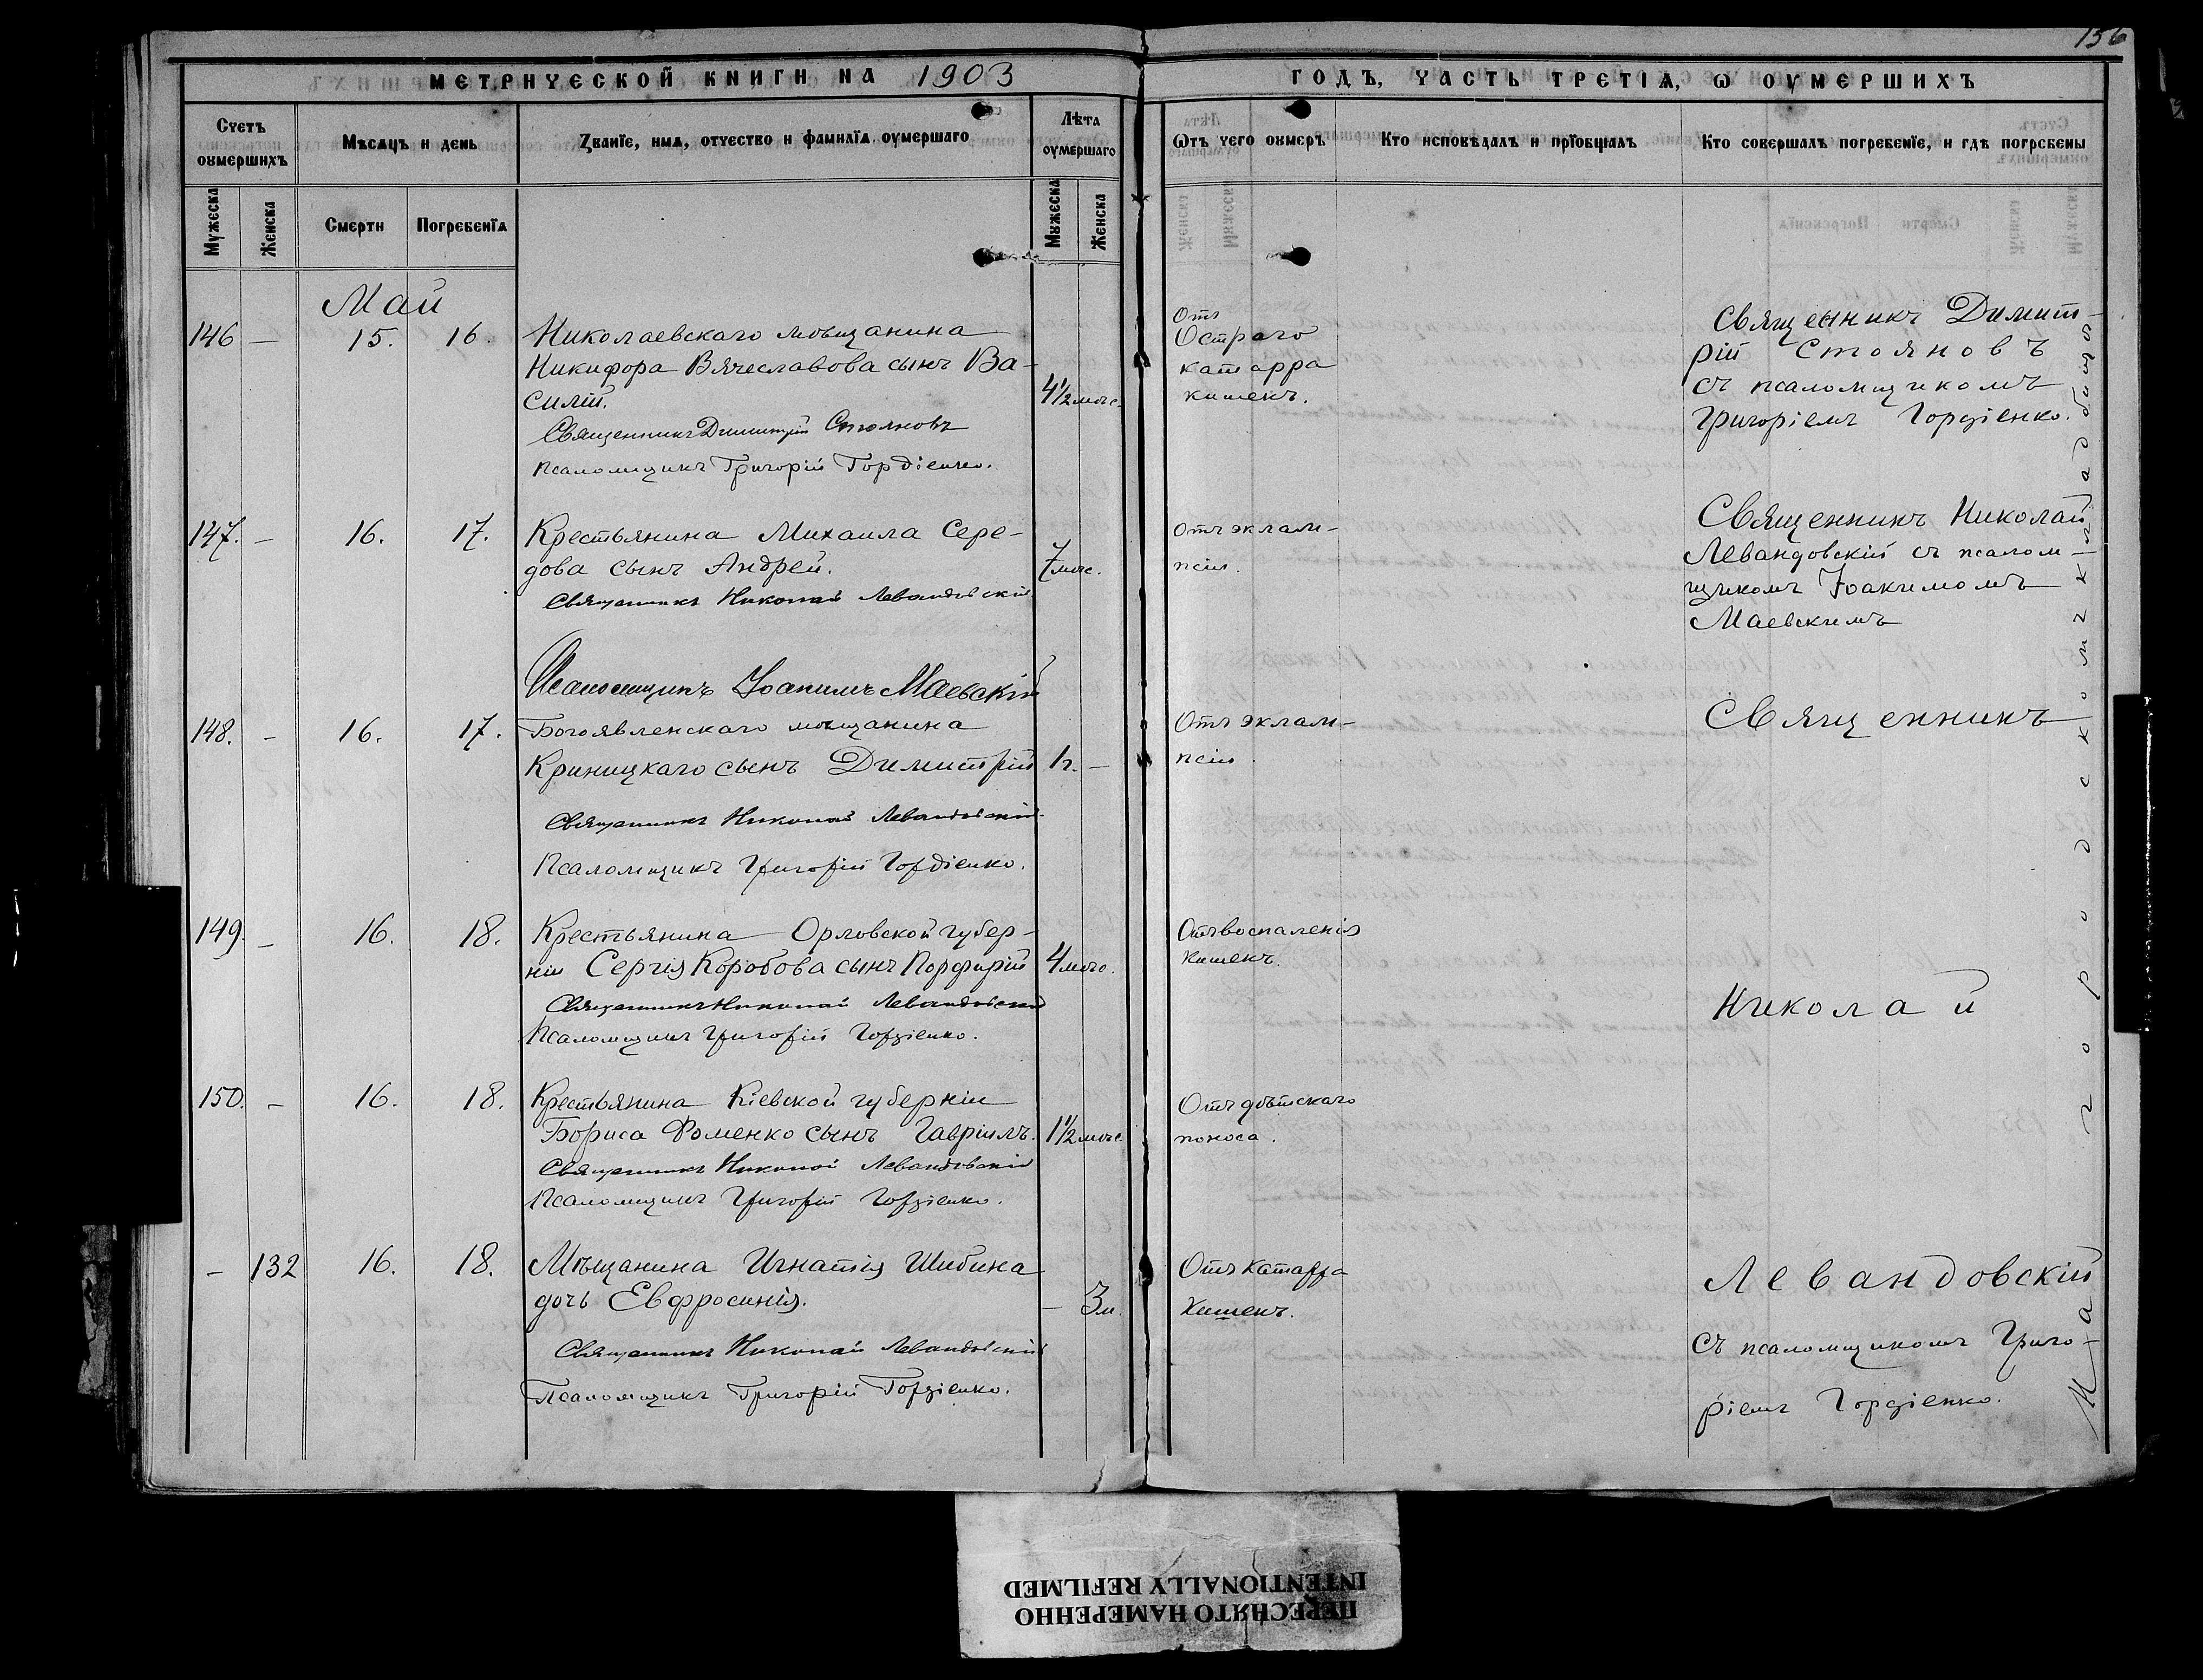 156
МЕТРИЧЕСКОЙ КНИГИ НА 1903
ГОДЪ, ЧАСТЬ ТРЕТІѦ, Ѡ ОУМЕРШИХЪ
Счетъ оумершихъ
Мѣсѧцъ и день
Званїе, имѧ, отчество и фамилїѧ оумершаго
Лѣта оумершаго
Ѿтъ чего оумеръ
Кто исповѣдалъ и прїобщалъ
Кто совершалъ погребенїе, и гдѣ погребены
Мужеска
Женска
Смерти
Погребенїѧ
Мужеска
Женска
Май
146 — 15. 16. Николаевскаго мѣщанина
Никифора Вячеславова сынъ Ва-
силій. 4½ мѣс.
Священникъ Димитрій Стояновъ
Псаломщикъ Григорій Гордіенко.
Отъ
Остраго
катарра
кишекъ.
Священникъ Димит-
рій Стояновъ
съ псаломщикомъ
Григоріемъ Гордіенко.
147. — 16. 17. Крестьянина Михаила Сере-
дова сынъ Андрей. 7 мѣс.
Священникъ Николай Левандовскій
Псаломщикъ Іоакимъ Маевскій
Отъ эклам-
псіи.
Священникъ Николай
Левандовскій съ псалом-
щикомъ Іоакимомъ
Маевскимъ
148. — 16. 17. Богоявленскаго мѣщанина
Криницкаго сынъ Димитрій 1 г. —
Священникъ Николай Левандовскій
Псаломщикъ Григорій Гордіенко.
Отъ эклам-
псіи.
Священникъ
149. — 16. 18. Крестьянина Орловской губер-
ніи Сергія Коробова сынъ Порфирій 4 мѣс.
Священникъ Николай Левандовскій
Псаломщикъ Григорій Гордіенко.
Отъ воспаленія
кишекъ.
Николай
150. — 16. 18. Крестьянина Кіевской губерніи
Бориса Фоменко сынъ Гавріилъ. 1½ мѣс.
Священникъ Николай Левандовскій
Псаломщикъ Григорій Гордіенко.
Отъ дѣтскаго
поноса.
— 132 16. 18. Мѣщанина Игнатія Шибина
дочь Евфросинія. — 3 м.
Священникъ Николай Левандовскій
Псаломщикъ Григорій Гордіенко.
Отъ катарра
кишекъ.
Левандовскій
съ псаломщикомъ Григо-
ріемъ Гордіенко.
На городскомъ кладбищѣ
ПЕРЕСНЯТО НАМЕРЕННО
INTENTIONALLY REFILMED